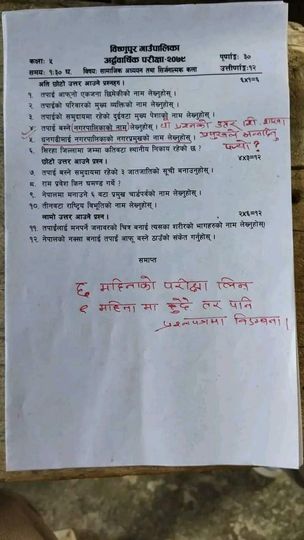 विष्णुपुर गाउँपालिका
कक्षाः ५ अर्द्धवार्षिक परीक्षा-२०७९ पूर्णाङ्कः ३०
समयः १:३० घ. विषयः सामाजिक अध्ययन तथा सिर्जनात्मक कला उत्तीर्णाङ्क:१२
अति छोटो उत्तर आउने प्रश्नहरु । ६x१=६
१. तपाई आफ्नो एकजना छिमेकीको नाम लेख्नुहोस् ।
२. तपाईको परिवारको मुख्य व्यक्तिको नाम लेख्नुहोस् ।
३. तपाईको समुदायमा रहेको दुईवटा मुख्य पेशाको नाम लेख्नुहोस् ।
४. तपाई बस्ने नगरपालिकाको नाम लेख्नुहोस् । यो प्रश्नको उत्तर
५. धनगढीमाई नगरपालिकाको नगरप्रमुखको नाम लेख्नुहोस् ।
६. सिरहा जिल्लामा जम्मा कतिवटा स्थानीय निकाय रहेको छ ?
छोटो उत्तर आउने प्रश्न । ४x३=१२
७. तपाई बस्ने समुदायमा रहेको ३ जातजातिको सूची बनाउनुहोस् ।
८. राम प्रवेश किन घमण्ड गर्थे ?
९. नेपालमा मनाउने ६ वटा प्रमुख चार्डपर्वको नाम लेख्नुहोस् ।
१०. तीनवटा राष्ट्रिय विभूतिको नाम लेख्नुहोस् ।
लामो उत्तर आउने प्रश्न । २x६=१२
११. तपाईलाई मनपर्ने जनावरको चित्र बनाई त्यसका शरीरको भागहरुको नाम लेख्नुहोस्।
१२. नेपालको नक्सा बनाई तपाई आफू बस्ने ठाउँको संकेत गर्नुहोस् ।
समाप्त
६ महिनाको परीक्षा लिन
९ महिना मा हुदै तर पनि
प्रश्नपत्रमा विडम्बना।